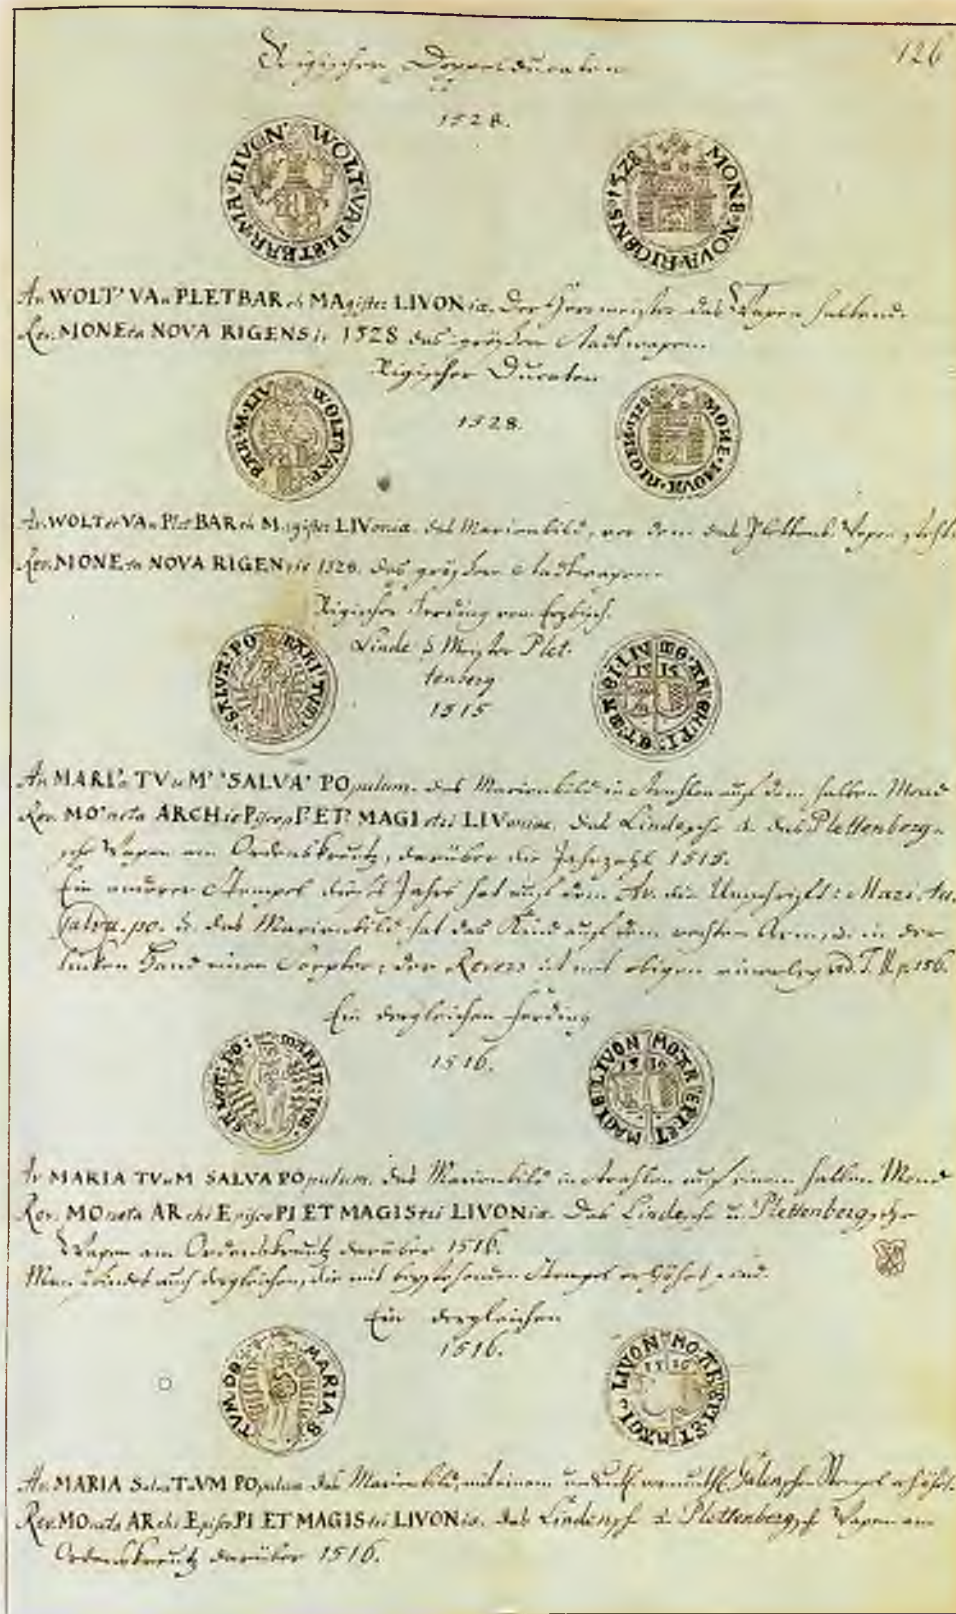 126
Rigischer Doppelducaten
1528.
WOLT VA PLETBAR MA LIVON'
MONE NOVA RIGENS 1528
Av. WOLT' VAn PLETBARch MAgister LIVONiæ. Der Herrmeister das Wapen haltend.
Rev. MONEta NOVA RIGENSis 1528 das größere Stadtwapen.
Rigischer Ducaten
1528.
WOLT VA P BAR M LIV
MONE NOVA RIGEN 1528
Av. WOLTer VAn PletBARch Magister LIVoniæ. das Marienbild, vor dem das Plettenb. Wapen steht.
Rev. MONEta NOVA RIGENsis 1528. das größere Stadtwapen.
Rigischer Ferding vom Erzbisch.
Linde & Meister Plet-
tenberg
1515
MARI TVM SALVA PO
MO ARCH PI ET MAGI LIV
1515
Av. MARI'a TVuM' 'SALVA' POpulum. das Marienbild in Strahlen auf dem halben Mond
Rev. MO'neta ARCHiePiscopI' ET' MAGIstri LIVoniæ. das Lindesche & das Plettenberg-
sche Wapen am Ordenskreutz, darüber die Jahrzahl 1515.
Ein anderer Stempel dieses Jahrs hat auf dem Av. die Umschrift: Mari. tu.
salva. po. & das Marienbild hat das Kind auf dem rechten Arm, & in der
linken Hand einen Scepter; der Revers ist mit obigen einerley vid. T. II. p. 156.
Ein dergleichen Ferding
1516.
MARIA TVM SALVA PO
MO AR EPI ET MAGIS LIVON
1516
Av. MARIA TVuM SALVA POpulum. das Marienbild in Strahlen auf einem halben Mond
Rev. MOneta ARchiEpiscoPI ET MAGIStri LIVONiæ. Das Lindesche u. Plettenbergsche
Wapen am Ordenskreutz darüber 1516.
Man findet auch dergleichen, die mit beystehenden Stempel erhöhet sind.
Ein dergleichen
1516.
MARIA S TVM PO
MO AR EPI ET MAGI LIVON
1516
Av. MARIA Salva TuVM POpulum das Marienbild, mit einem Stempel erhöhet.
Rev. MOneta ARchi EpiscoPI ET MAGIStri LIVONiæ. das Lindensche & Plettenbergsche Wapen am
Ordenskreutz darüber 1516.